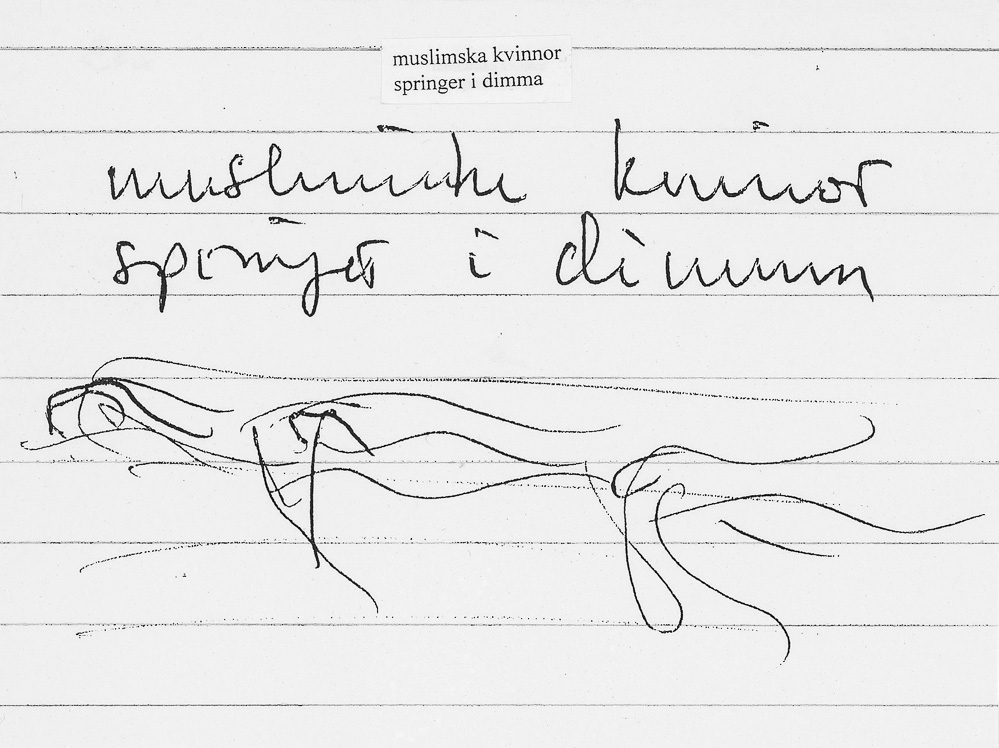 muslimska kvinnor
springer i dimma
muslimska kvinnor
springer i dimma